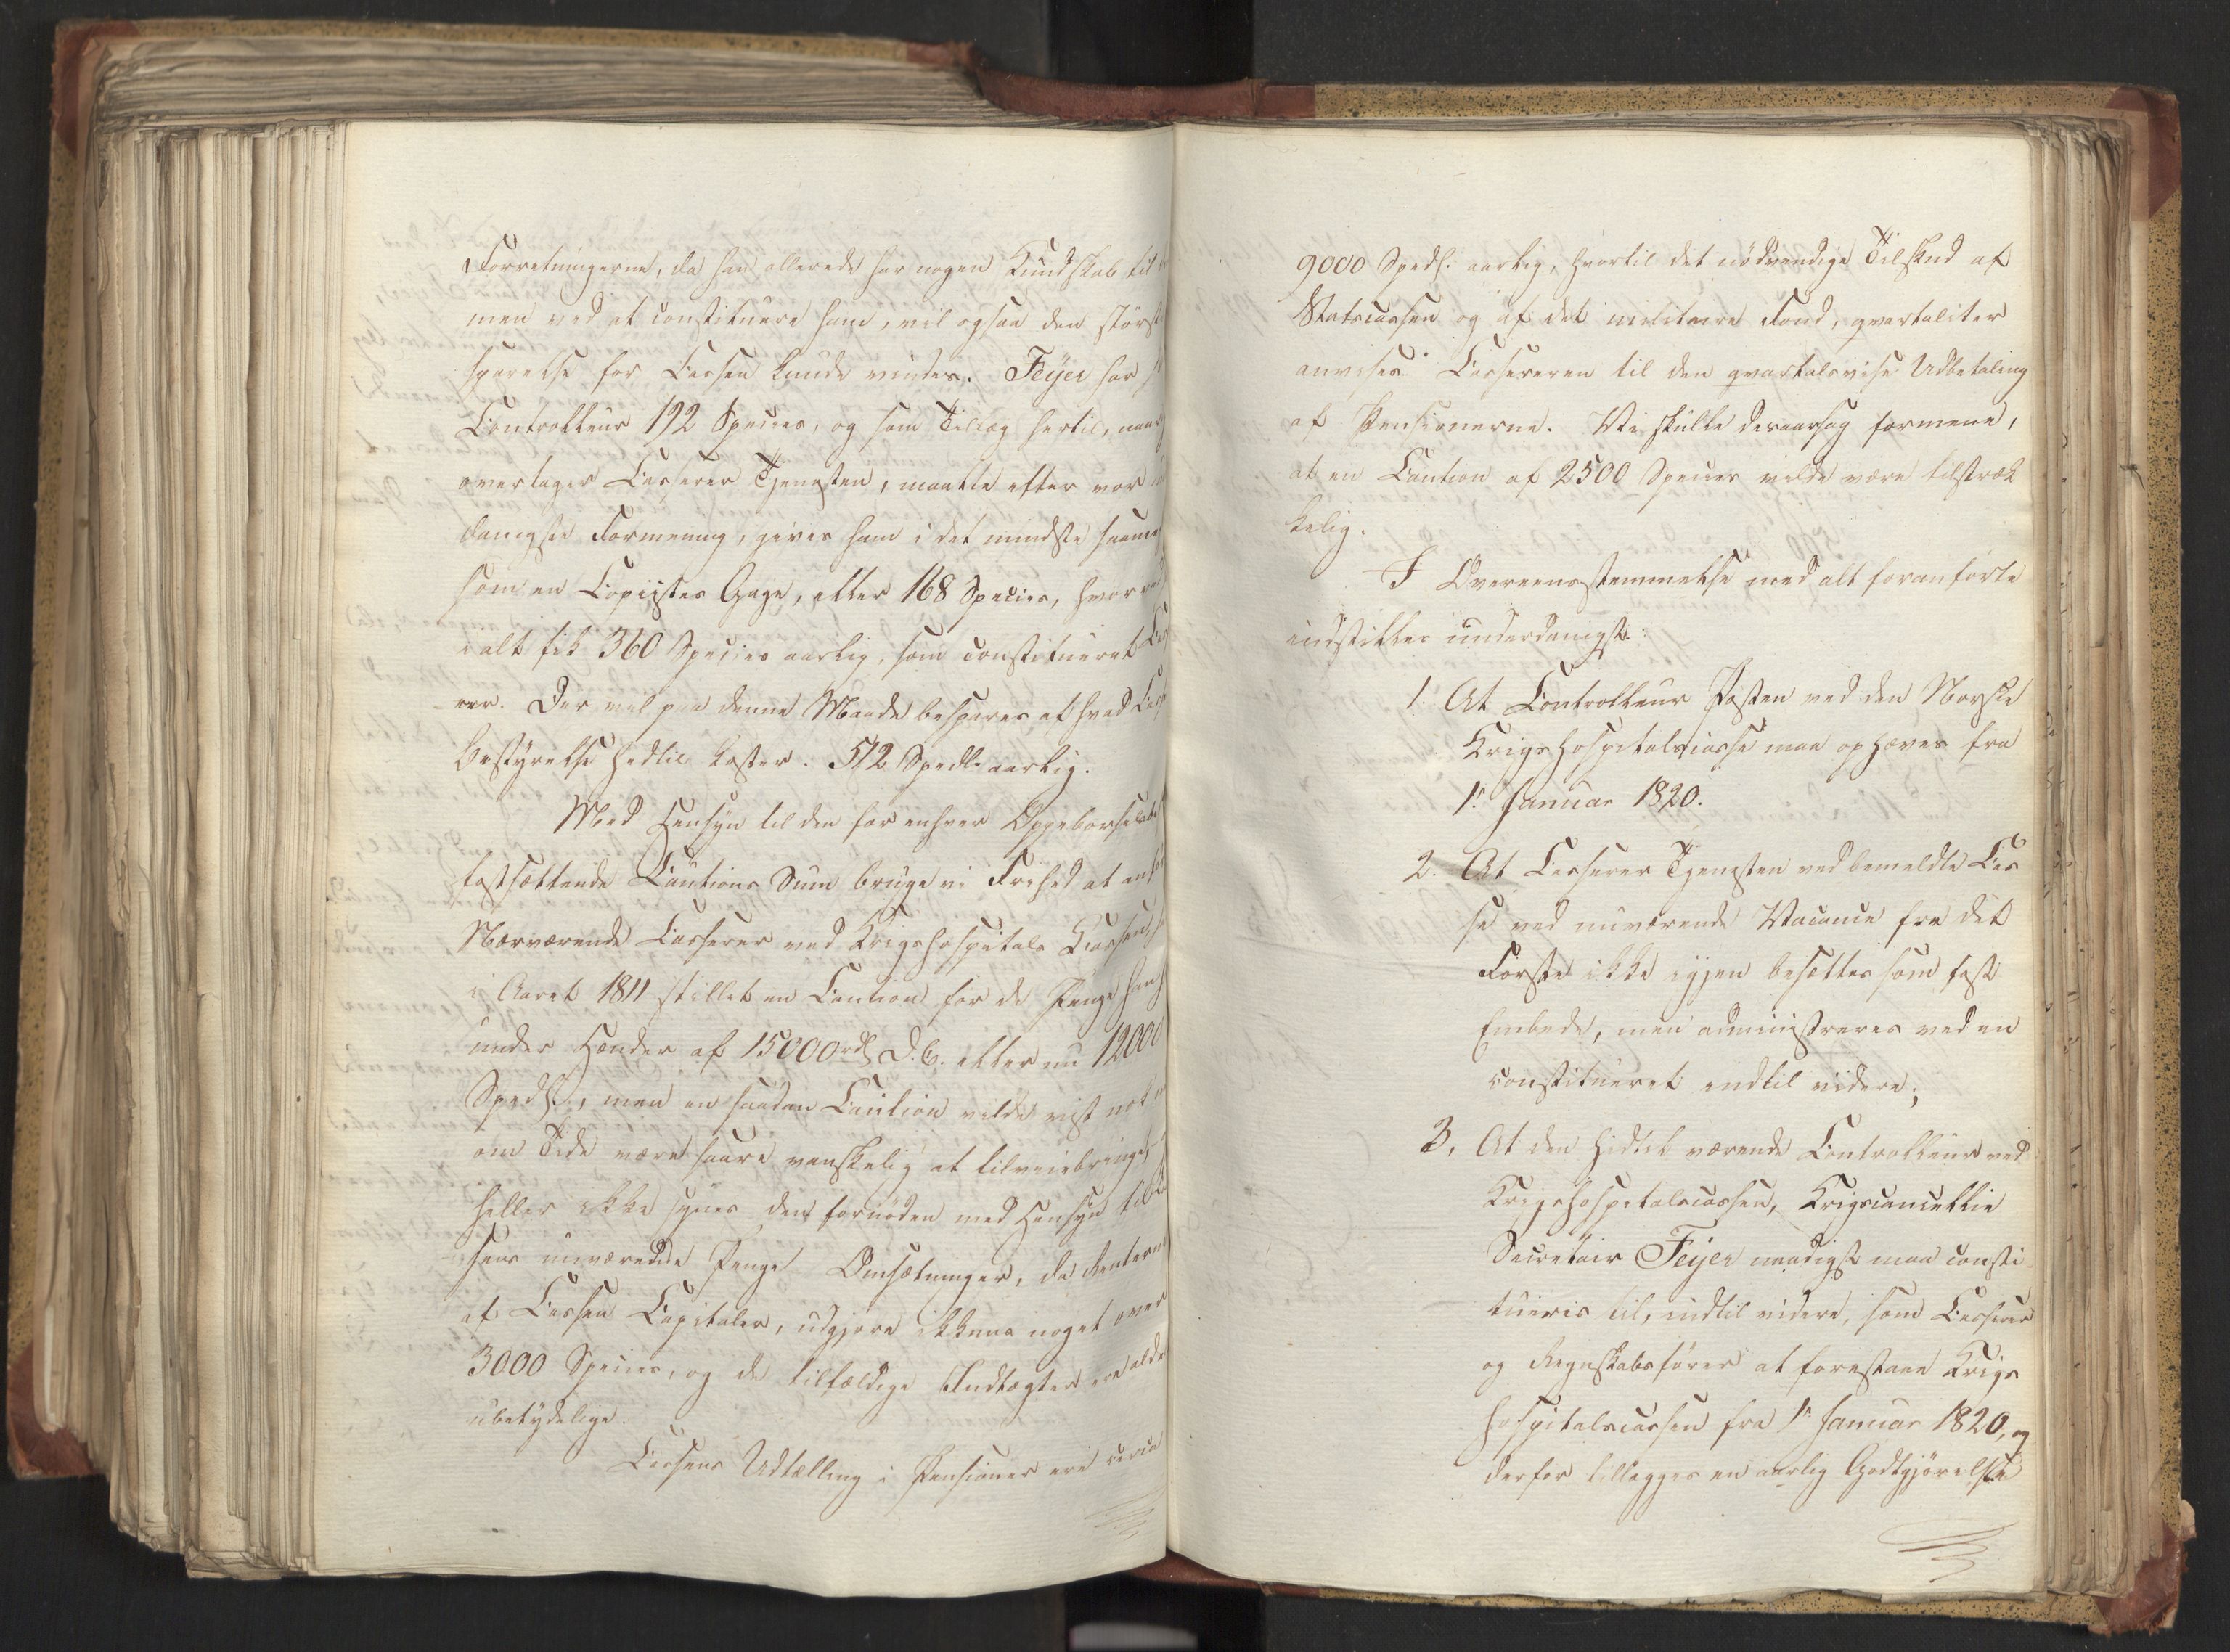 Forretningerne, da han allerede har nogen Kundskab til
men ved at constituere ham, vil ogsaa den störst
sparelse for Cassen kunde vindes. Feijer har
Controlleur 192 Species, og som Tillæg hertil, naar
overtager Casserer Tjenesten, maatte efter vor
danigste Formening, gives ham i det mindste saameg
som en Copiistes Gage, eller 168 Species, hvorved
i alt fik 360 Species aarlig, som constitueret
rer. Der vil paa denne Maade bespares af hvad
Bestyrelse hedtil koster. 512 Spedlr aarlig.
Med Hensyn til den for enhver Oppebørsels
fastsættende Cautions Sum bruge vi Frihed at
Nærværende Casserer ved Krigshospitals Cassen,
i Aaret 1811 stillet en Caution for de Penge han
under Hænder af 15000 rdl D.C. eller nu 12000
Spedlr, men en saadan Caution vilde vist nok
om Tide være saare vanskelig at tilveiebringe,
heller ikke synes den fornöden med Hensyn til
sens nuværende Penge Omsætninger, da Renterne
af Cassen Capitaler, udgjøre ikkun noget over
3000 Species, og de tilfældige Indtægter ere
ubetydelige.
Cassens Udtælling i Pensioner ere circa
9000 Spedlr. aarlig, hvortil det nödvendige Tilskud af
Statscassen og af det militaire Fond, qvartaliter
anvises Cassereren til den qvartalsvise Udbetaling
af Pensionerne. Vi skulle desaarsag formene,
at en Caution af 2500 Species vilde være tilstræk
kelig.
I Overeensstemmelse med alt foranførte
indstilles underdanigst:
1. At Controlleur Posten ved den Norske
Krigshospitalscasse maa ophæves fra
1r Januar 1820.
2. At Casserer Tjenesten ved bemeldte Cas
se ved nuværende Vacance fra det
Første ikke igjen besættes som fast
Embede, men administreres ved en
constitueret indtil videre;
3. At den hidtil værende Controlleur ved
Krigshospitalscassen, Krigscancellie
Secretair Feijer naadigst maa consti
tueres til, indtil videre, som Casserer
og Regnskabsfører at forestaae Krigs
hospitalscassen fra 1r Januar 1820, og
derfor tillægges en aarlig Godtgjörelse